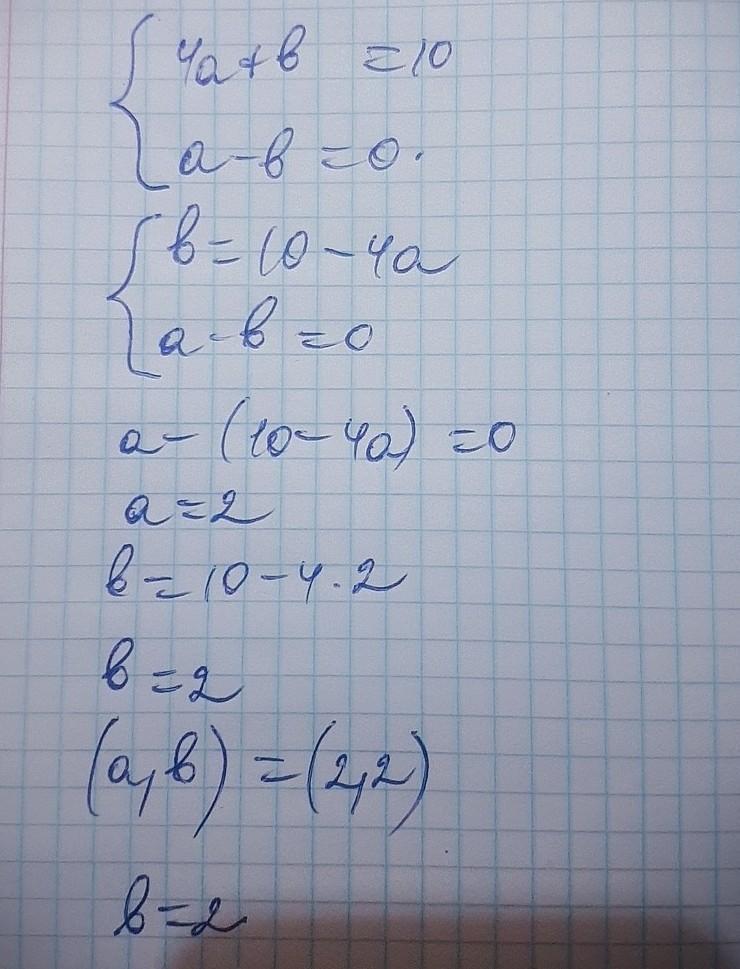 4a+b =10
a-b=0.
b=10-4a
a-b=0
a-(10-4a)=0
a=2
b=10-4·2
b=2
(a,b)=(2,2)
b=2